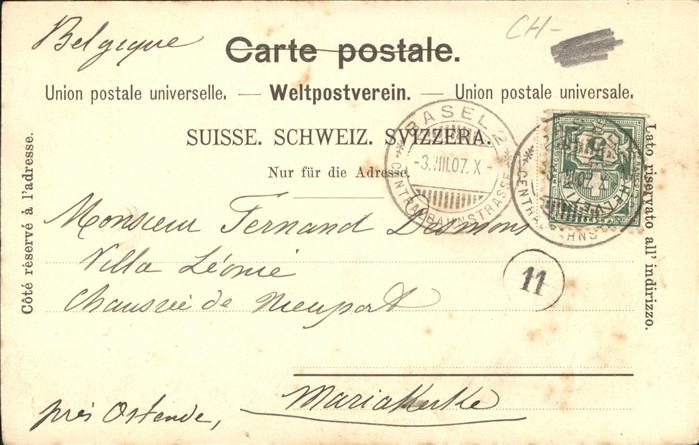 Belgique
CH-
Carte postale.
Union postale universelle. — Weltpostverein. — Union postale universale.
SUISSE. SCHWEIZ. SVIZZERA.
Nur für die Adresse
Côté réservé à l'adresse.
Lato riservato all' indirizzo.
BASEL 2
-3.VIII.07.X-
CENTRALBAHNSTRASSE
Monsieur Fernand Desmons
Villa Léonie
Chaussée de Nieuport
11
près Ostende, Mariakerke